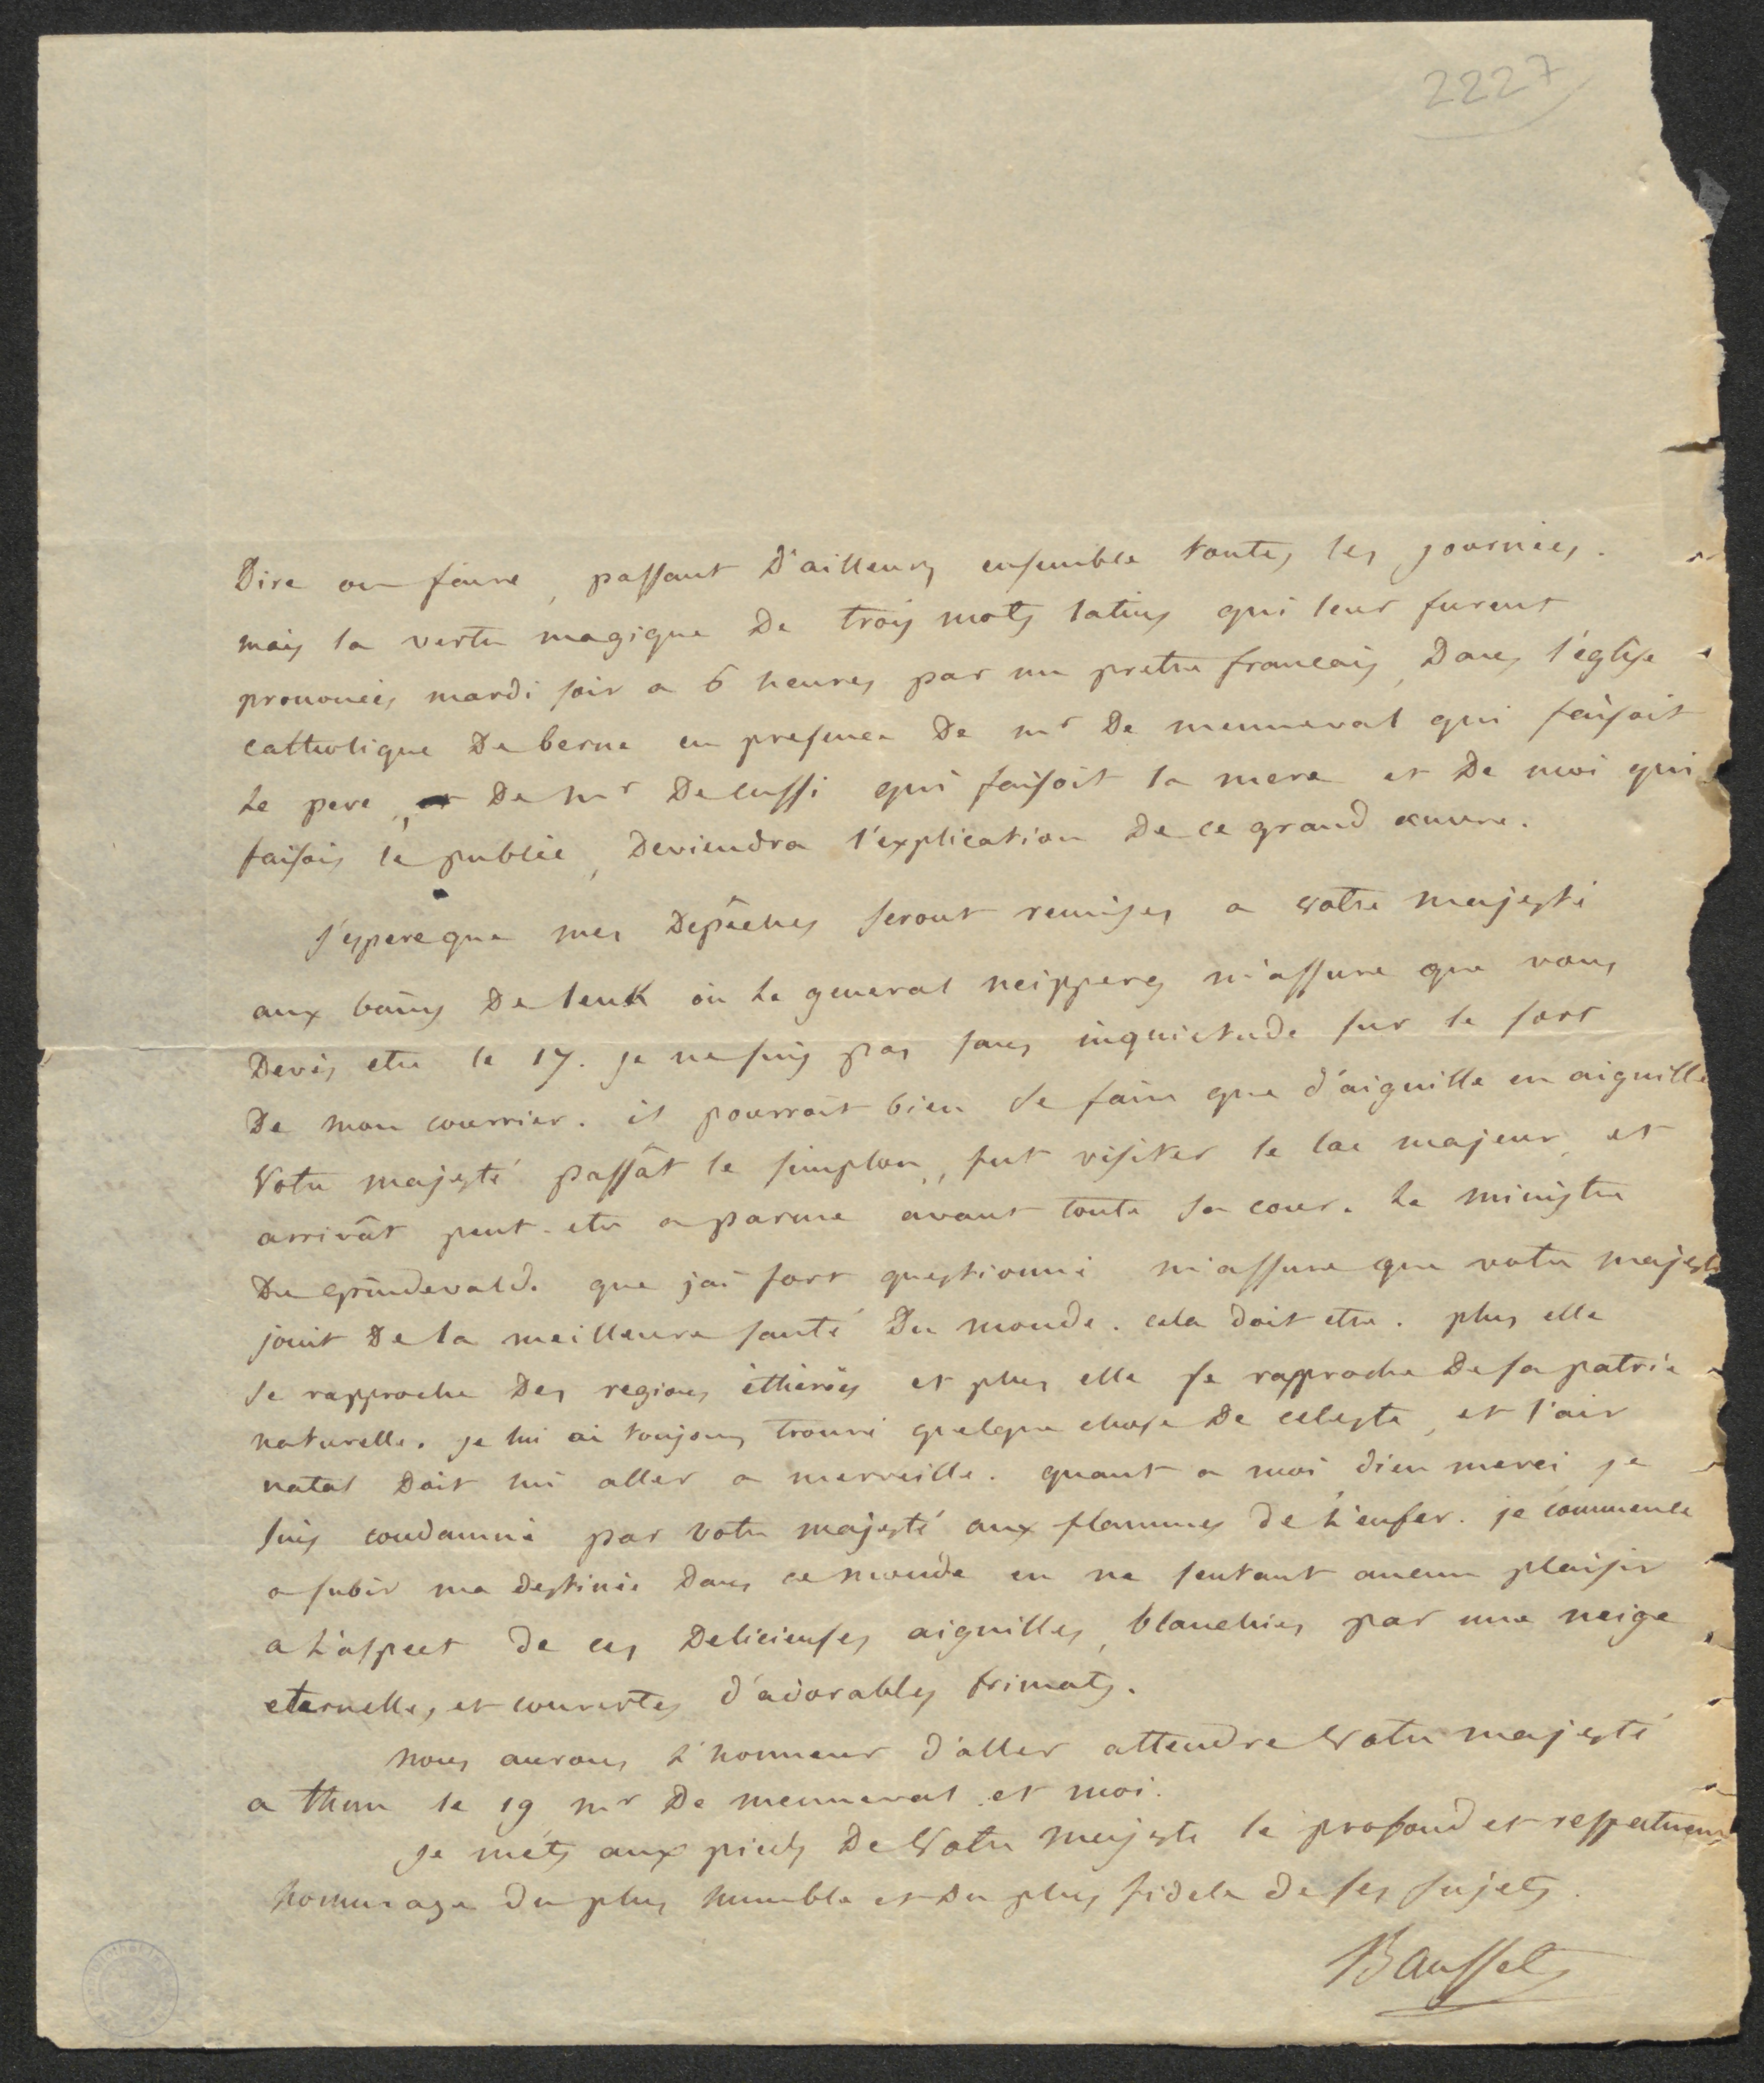 2227
Dire ou faire, passant D'ailleurs ensemble toutes les journées.
mais la vertu magique De trois mots latins qui leur furent
prononcés mardi soir a 6 heures par un pretre francais, Dans l'église
catholique De berne en presence De mr De menneval qui faisoit
Le pere, De mr De cussi qui faisoit la mere et De moi qui
faisois le public, Deviendra l'explication De ce grand œuvre.
J'espere que mes Depêches seront remises a votre majesté
aux bains De leuk où Le general neipperg m'assure que vous
Devés etre le 17. je ne suis pas sans inquietude sur le sort
De mon courrier. il pourroit bien se faire que d'aiguille en aiguille
Votre majesté passât le simplon, fut visiter le lac majeur, et
arrivât peut-etre a parme avant toute sa cour. Le ministre
Du grindevald. que jai fort questionné m'assure que votre majesté
jouit De la meilleure santé Du monde. cela doit etre. plus elle
se rapproche Des regions éthérées et plus elle se rapproche De sa patrie
naturelle. je lui ai toujours trouvé quelque chose De celeste, et l'air
natal Doit lui aller a merveille. quant a moi dieu merci je
suis condamné par votre majesté aux flammes de L'enfer. je commence
a subir ma Destinée Dans ce monde en ne sentant aucun plaisir
a L'aspect de ces Delicieuses aiguilles, blanchies par une neige
eternelle, et couvertes d'adorables frimats.
nous aurons L'honneur d'aller attendre Votre majesté
a thun le 19 mr De menneval et moi.
Je mets aux pieds De Votre majesté le profond et respectueux
hommage du plus humble et Du plus fidele de ses sujets.
Bausset